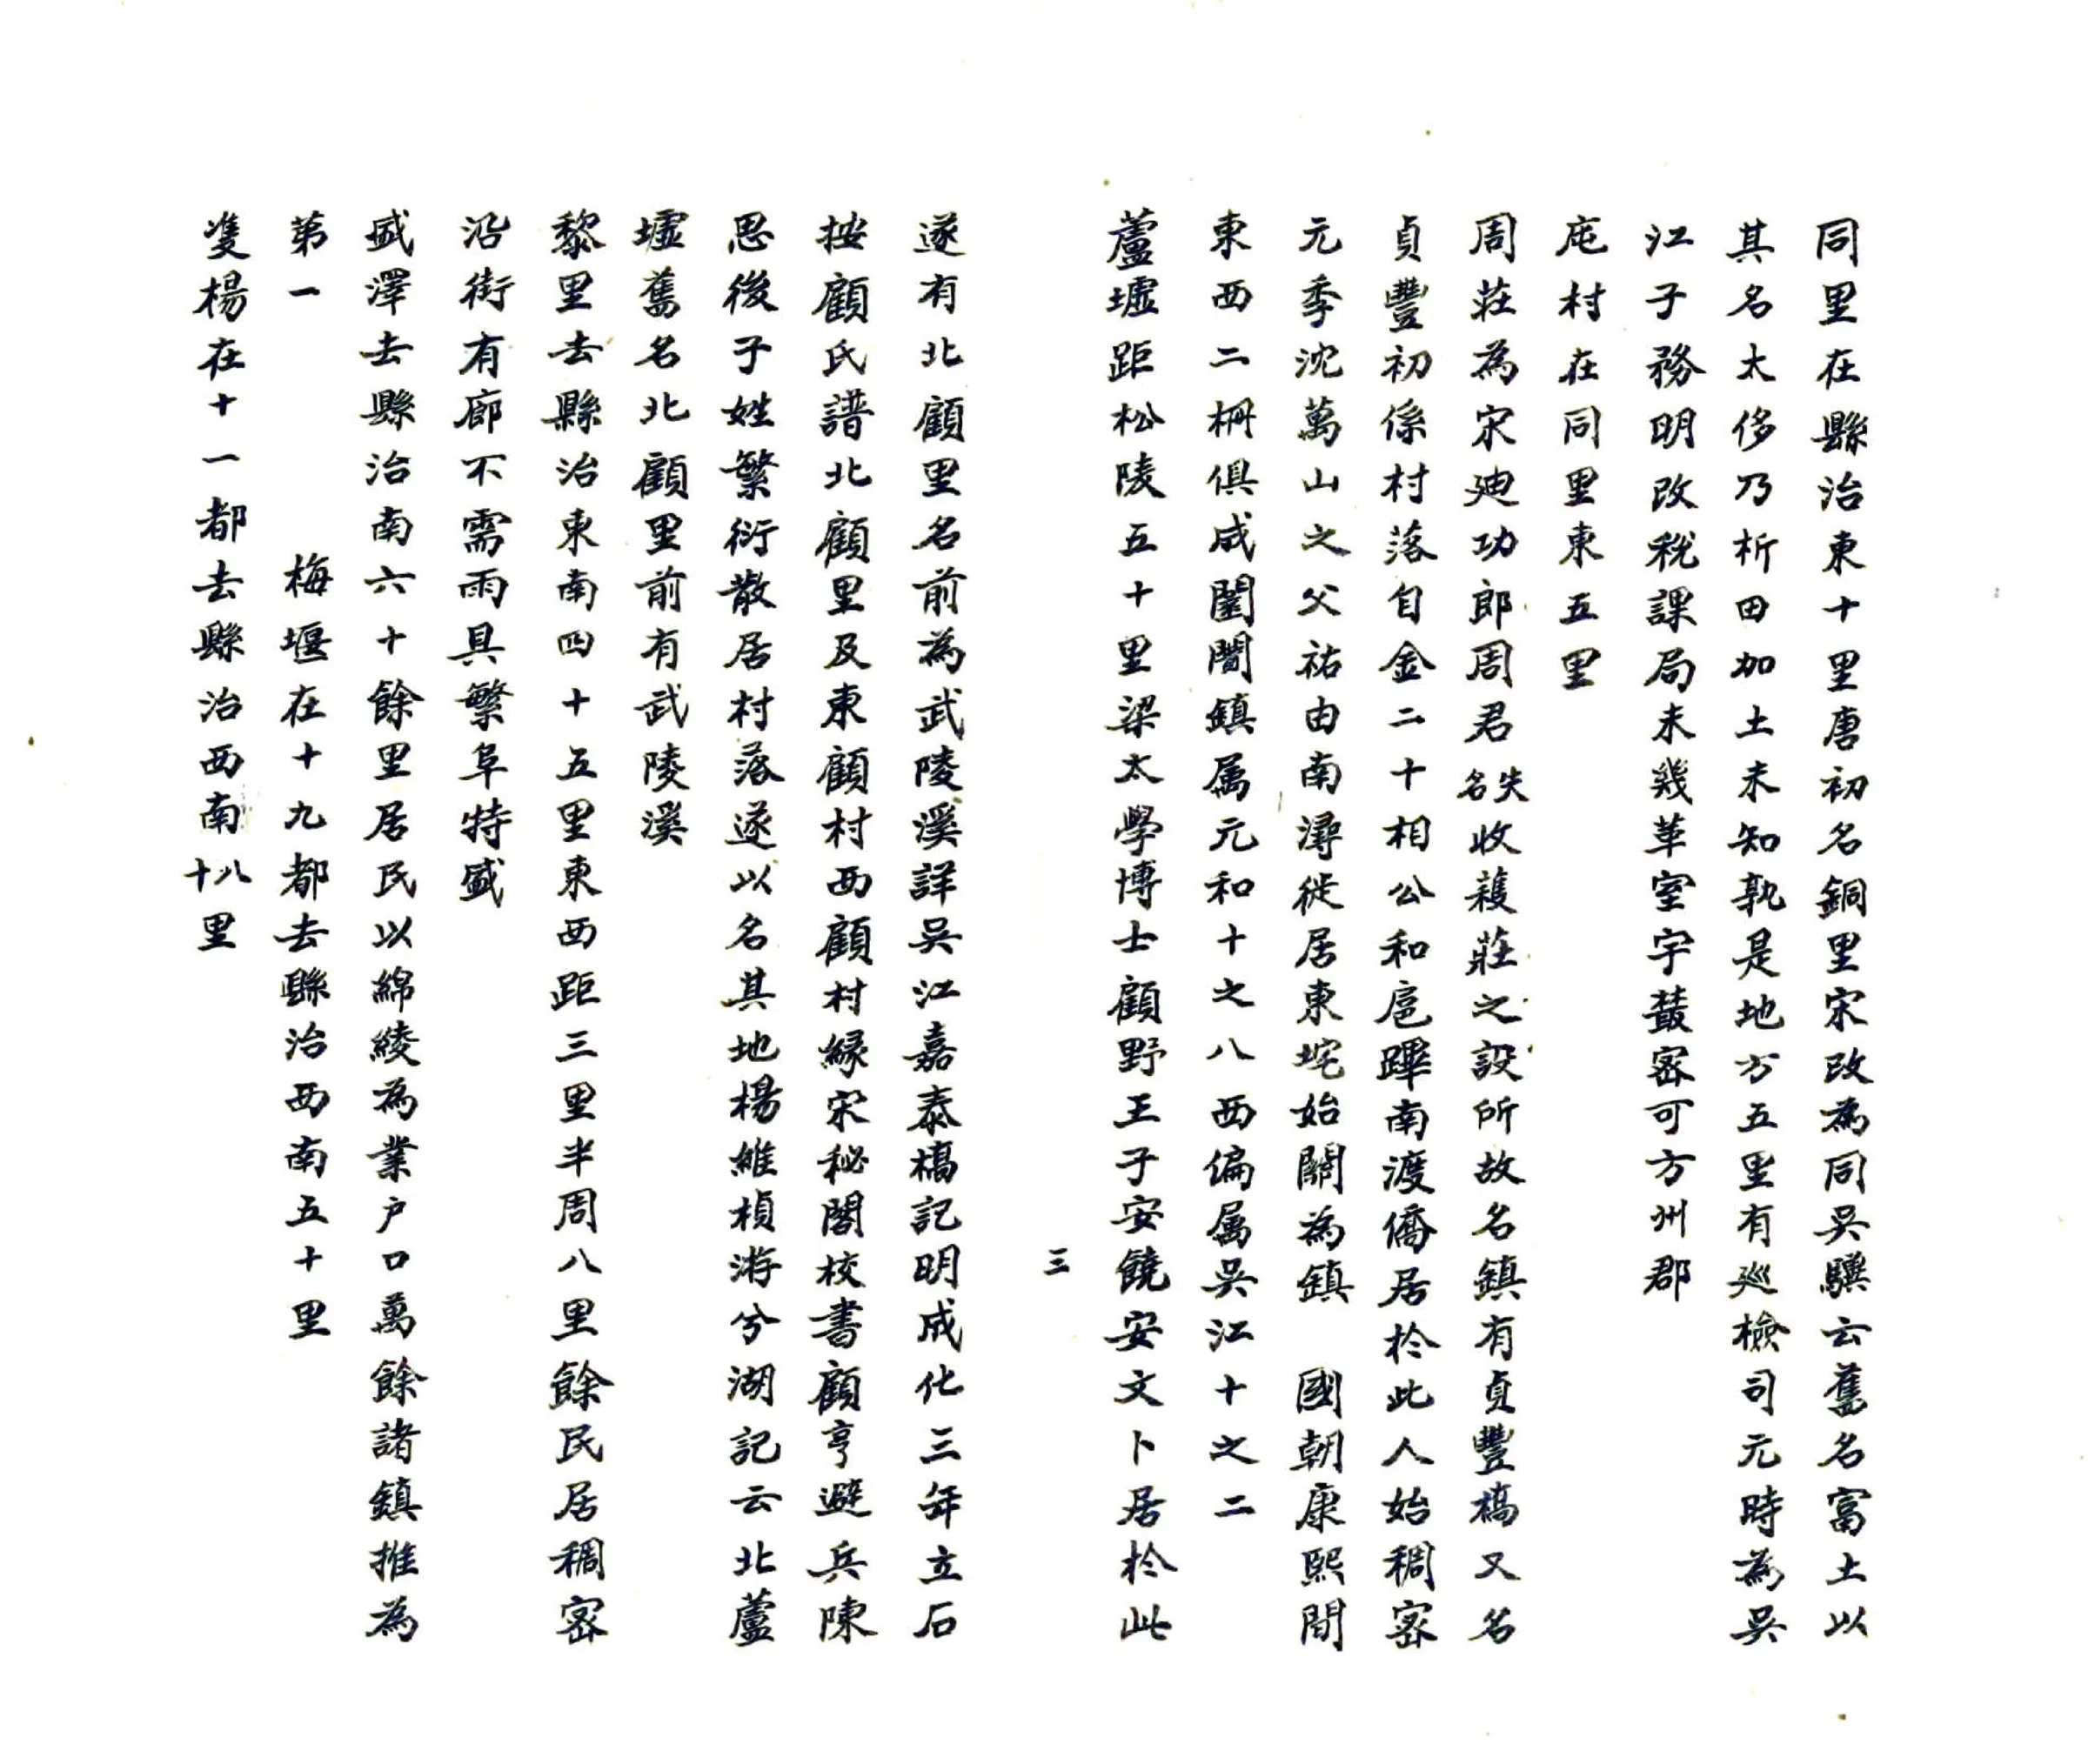 同里在縣治東十里唐初名銅里宋改為同吳驥云舊名富土以
其名太侈乃析田加土未知孰是地方五里有廵檢司元時為吳
江子務明改稅課局未幾革室宇蕞密可方州郡
庉村在同里東五里
周莊為宋廸功郎周君失名收穫莊之設所故名鎮有貞豐橋又名
貞豐初係村落自金二十相公和扈蹕南渡僑居於此人始稠密
元季沈萬山之父祐由南潯徙居東垞始闢為鎮　國朝康熙間
東西二柵俱成闤闠鎮属元和十之八西偏属吳江十之二
蘆墟距松陵五十里梁太學博士顧野王子安饒安文卜居於此
三
遂有北顧里名前為武陵溪詳吳江嘉泰橋記明成化三年立石
按顧氏譜北顧里及東顧村西顧村緣宋秘閣校書顧亨避兵陳
思後子姓繁衍散居村落遂以名其地楊維楨游兮湖記云北蘆
墟舊名北顧里前有武陵溪
黎里去縣治東南四十五里東西距三里半周八里餘民居稠密
沿街有廊不需雨具繁阜特盛
盛澤去縣治南六十餘里居民以綿綾為業户口萬餘諸鎮推為
第一　　　　梅堰在十九都去縣治西南五十里
雙楊在十一都去縣治西南十八里